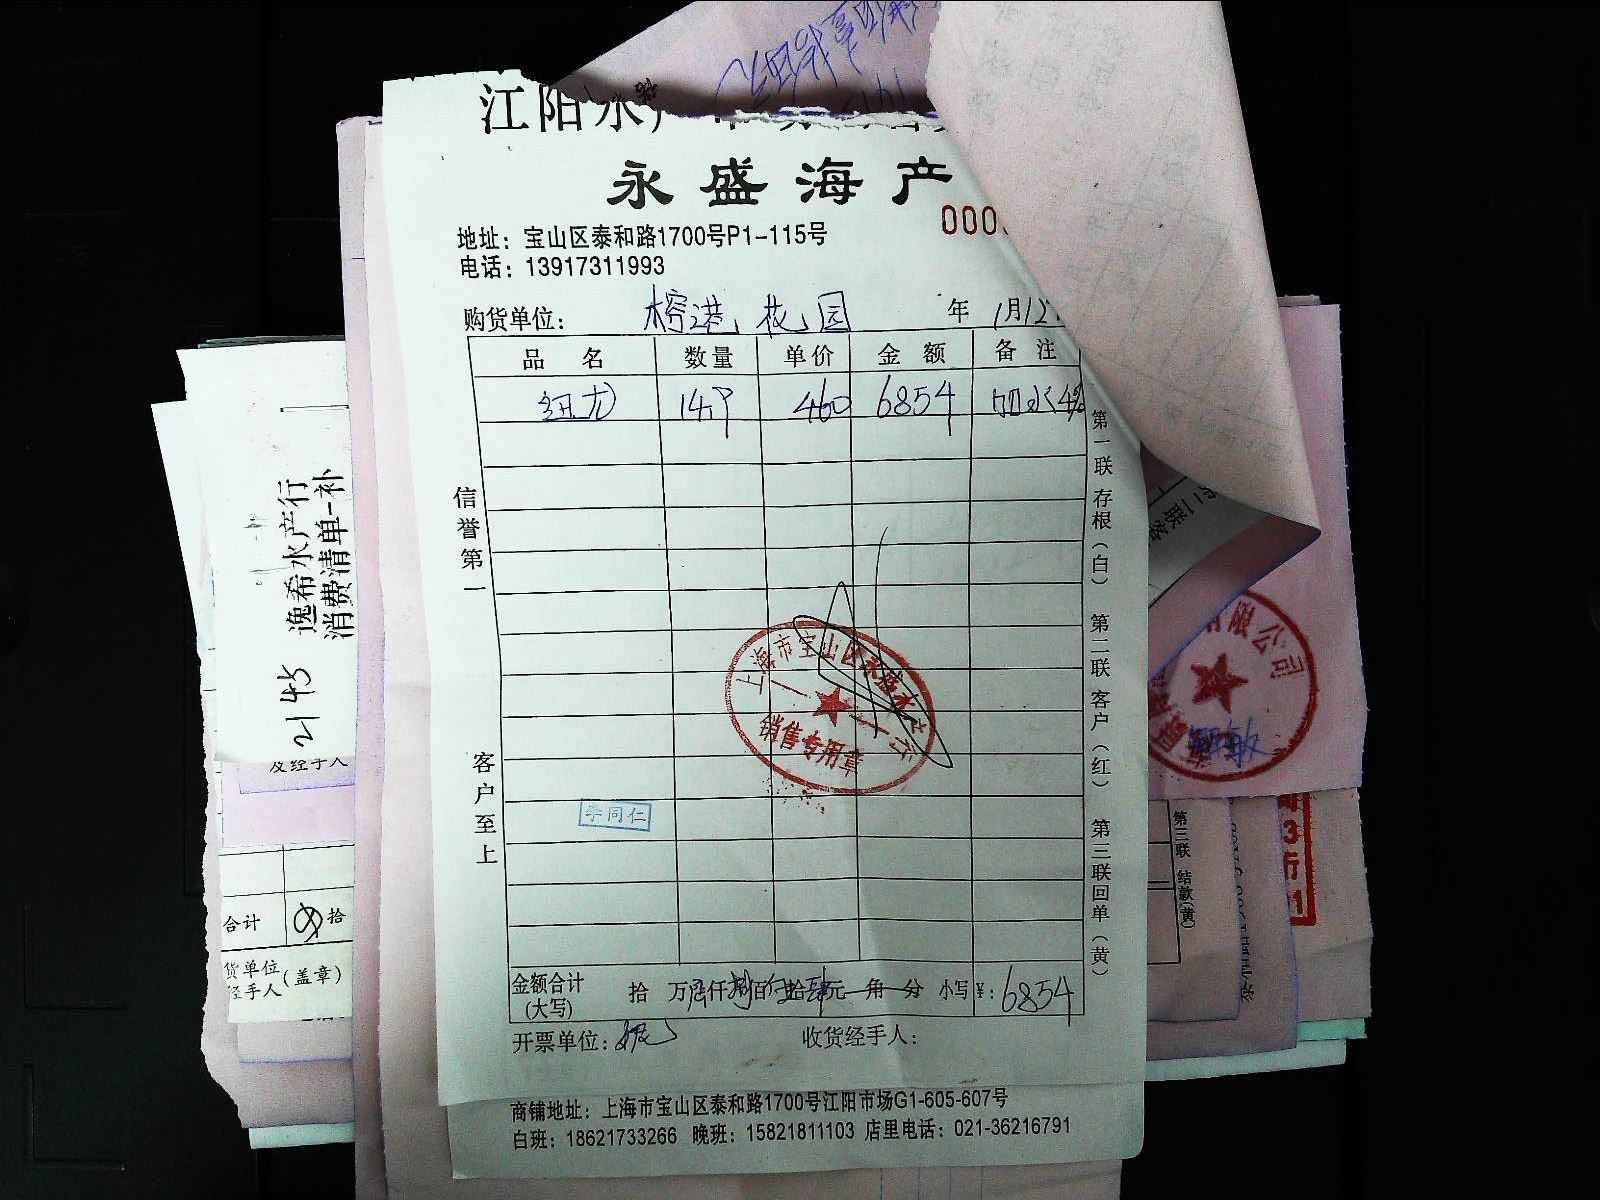 江阳水产
永盛海产
000
地址：宝山区泰和路1700号P1-115号
电话：13917311993
购货单位：榕港花园 年 1月12
品名 数量 单价 金额 备注
纽龙 14.9 460 6854 加水4%
信誉第一
客户至上
第一联存根（白） 第二联客户（红） 第三联回单（黄）
上海市宝山区永盛水产行
销售专用章
李同仁
金额合计(大写) 拾 万陆仟捌百伍拾肆元 角 分 小写¥：6854
开票单位：
收货经手人：
商铺地址：上海市宝山区泰和路1700号江阳市场G1-605-607号
白班：18621733266 晚班：15821811103 店里电话：021-36216791
逸希水产行
消费清单-补
2145
及经手人
合计 拾
货单位
经手人(盖章)
第二联
有限公司
第三联 结款(黄)